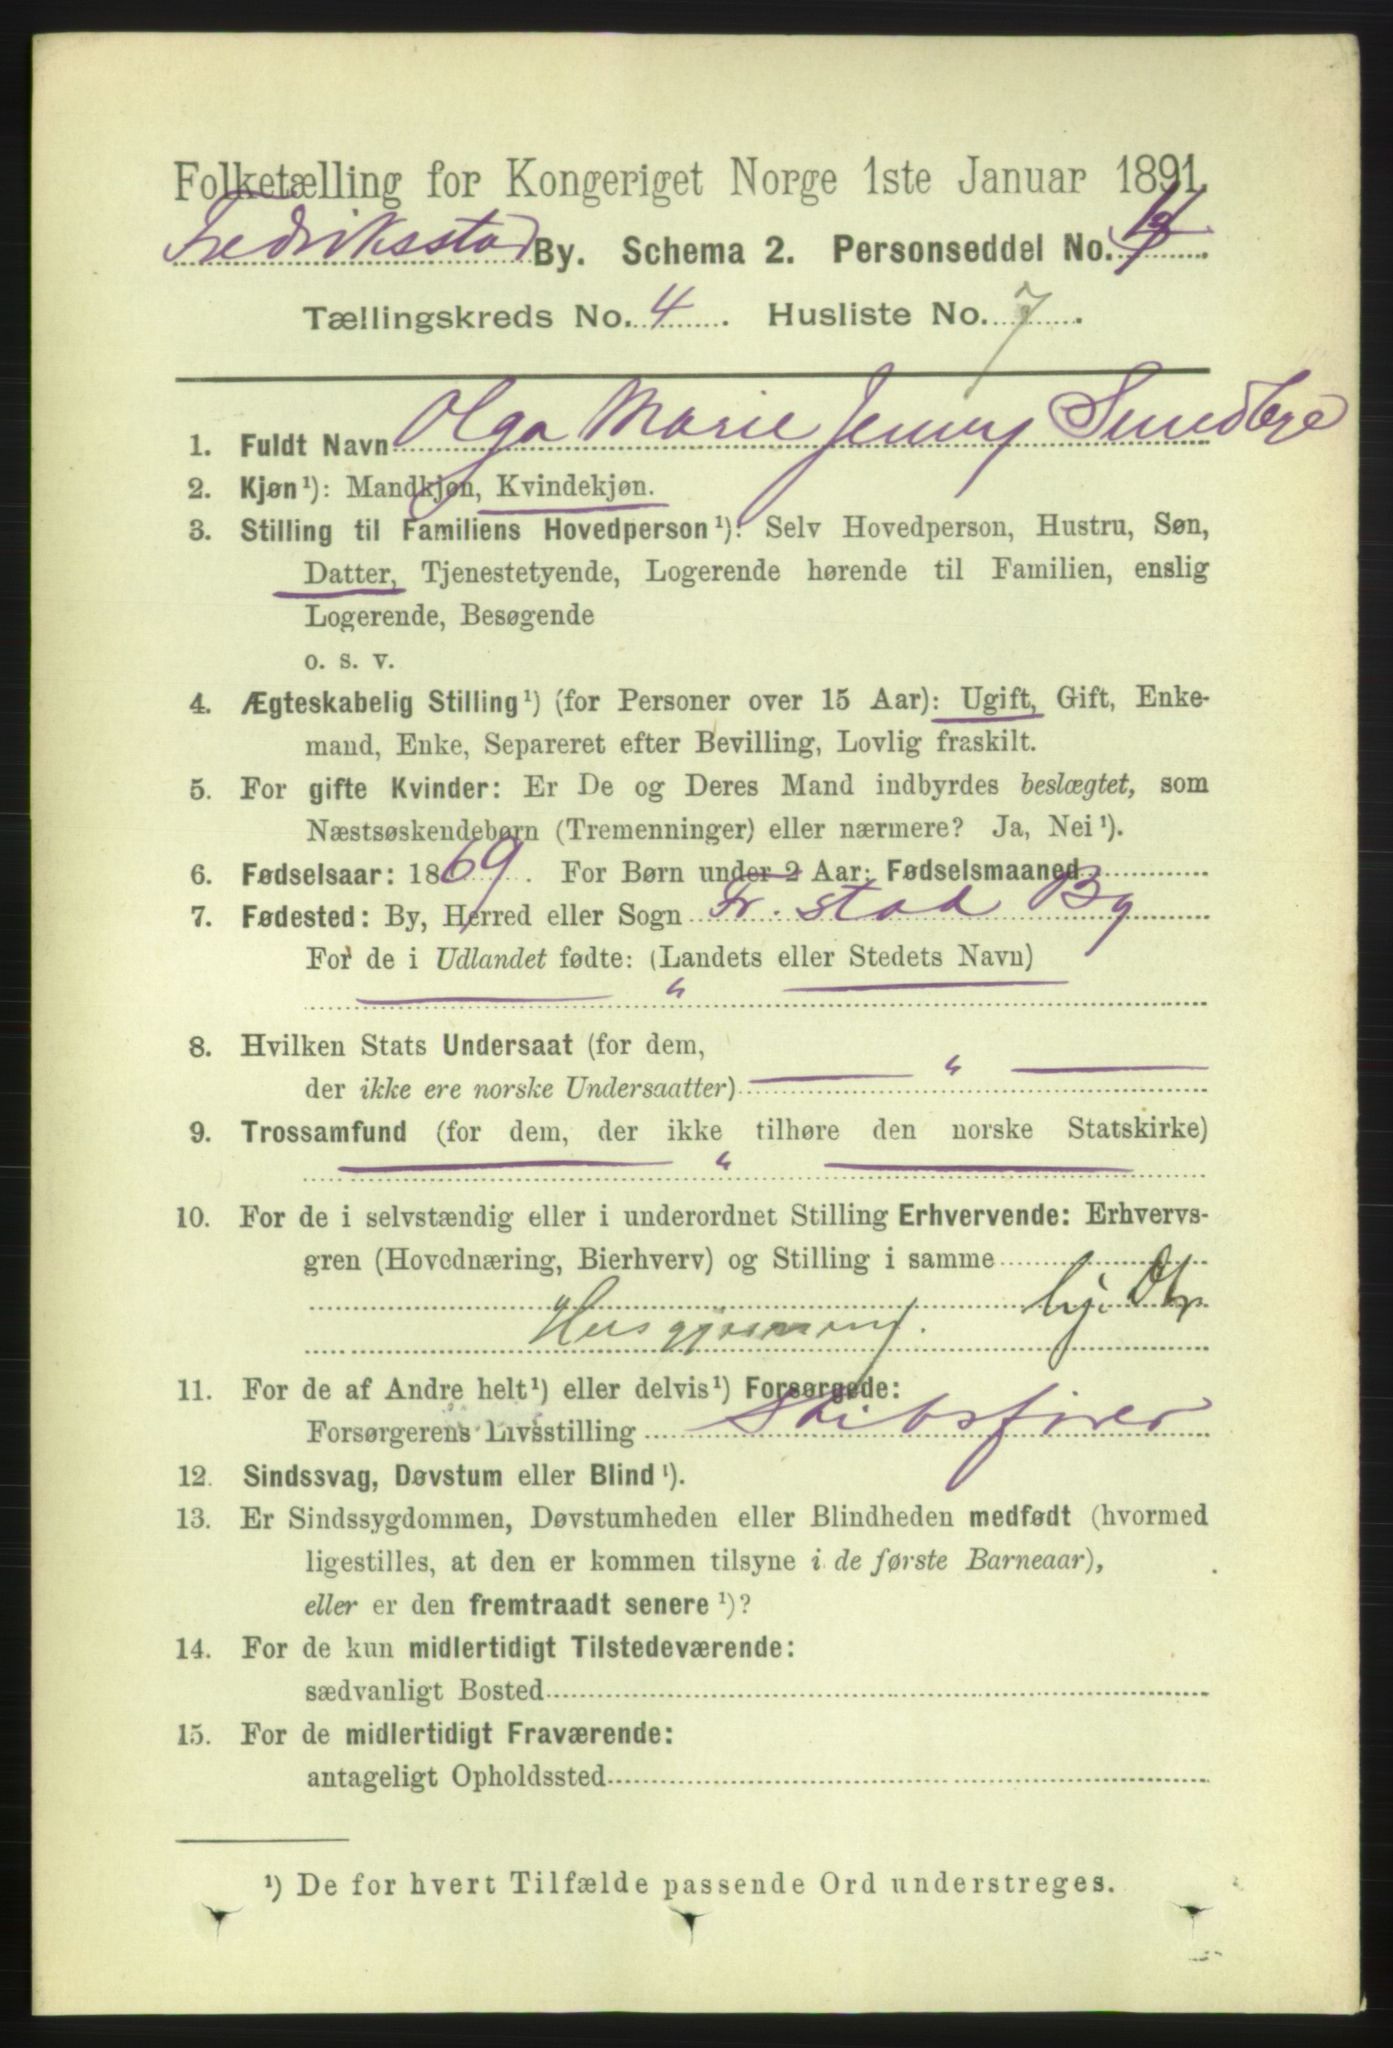 Folketælling for Kongeriget Norge 1ste Januar 1891.
Fredriksstad By. Schema 2. Personseddel No.
Tællingskreds No. 4. Husliste No. 7.
1. Fuldt Navn Olga Marie Jenny Sundbye
2. Kjøn¹): Mandkjøn, Kvindekjøn.
3. Stilling til Familiens Hovedperson¹): Selv Hovedperson, Hustru, Søn,
Datter, Tjenestetyende, Logerende hørende til Familien, enslig
Logerende, Besøgende
o. s. v.
4. Ægteskabelig Stilling¹) (for Personer over 15 Aar): Ugift, Gift, Enke-
mand, Enke, Separeret efter Bevilling, Lovlig fraskilt.
5. For gifte Kvinder: Er De og Deres Mand indbyrdes beslægtet, som
Næstsøskendebørn (Tremenninger) eller nærmere? Ja, Nei¹).
6. Fødselsaar: 1869. For Børn under 2 Aar: Fødselsmaaned
7. Fødested: By, Herred eller Sogn Fr. stad By
For de i Udlandet fødte: (Landets eller Stedets Navn)
"
8. Hvilken Stats Undersaat (for dem,
der ikke ere norske Undersaatter) "
9. Trossamfund (for dem, der ikke tilhøre den norske Statskirke)
"
10. For de i selvstændig eller i underordnet Stilling Erhvervende: Erhvervs-
gren (Hovednæring, Bierhverv) og Stilling i samme
Husgjerning. hj.
11. For de af Andre helt¹) eller delvis¹) Forsørgede:
Forsørgerens Livsstilling Skibsfører
12. Sindssvag, Døvstum eller Blind¹).
13. Er Sindssygdommen, Døvstumheden eller Blindheden medfødt (hvormed
ligestilles, at den er kommen tilsyne i de første Barneaar),
eller er den fremtraadt senere¹)?
14. For de kun midlertidigt Tilstedeværende:
sædvanligt Bosted
15. For de midlertidigt Fraværende:
antageligt Opholdssted
¹) De for hvert Tilfælde passende Ord understreges.